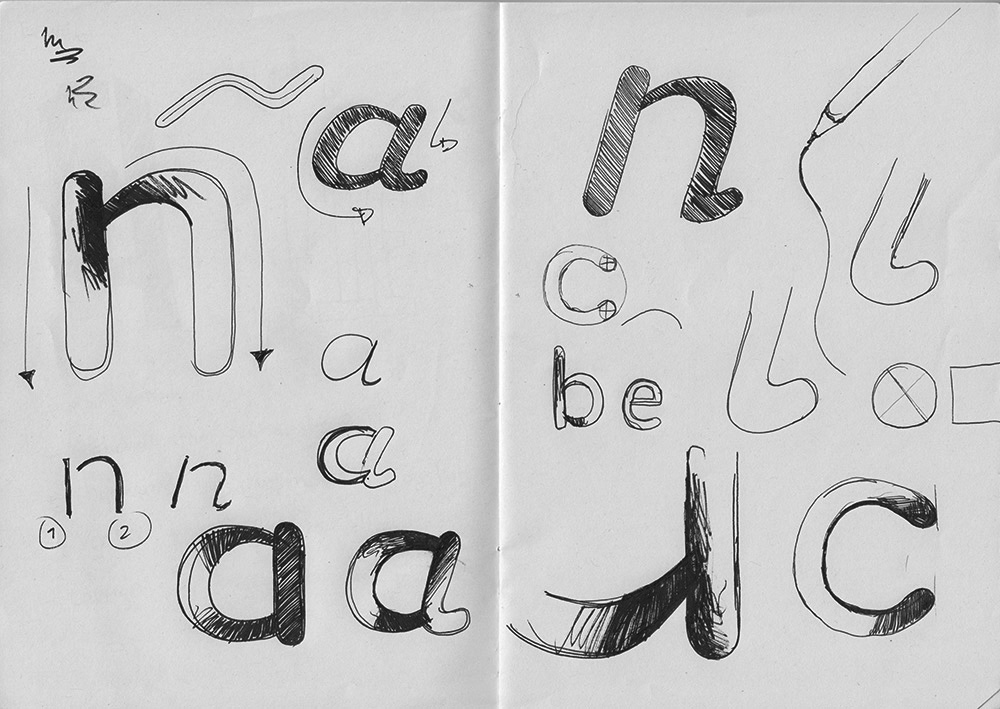 a
n
a
a
n n
1 2
a a
n
c
be
c